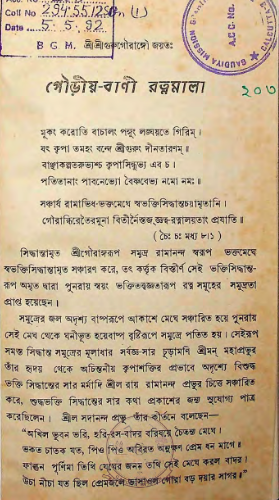 Coll No 294.55129 (1)
Date 5.5.92
B G M.
GAUDIYA MISSION
শ্রীশ্রীগুরুগৌরাঙ্গৌ জয়তঃ
গৌড়ীয়-বাণী রত্নমালা
২০৩
মূকং করোতি বাচালং পঙ্গুং লঙ্ঘয়তে গিরিম্।
যৎ কৃপা তমহং বন্দে শ্রীগুরুং দীনতারণম্॥
বাঞ্ছাকল্পতরুভ্যশ্চ কৃপাসিন্ধুভ্য এব চ।
পতিতানাং পাবনেভ্যো বৈষ্ণবেভ্য নমো নমঃ॥
সঞ্চার্য রামাভিধ-ভক্তমেঘে স্বভক্তিসিদ্ধান্তচয়ামৃতানি।
গৌরাব্ধিরেতৈরমুনা বিতীর্নৈস্তজ্জ্ঞত্ব-রত্নালয়তাং প্রযাতি॥
( চৈঃ চঃ মধ্য ৮।১ )
সিদ্ধান্তামৃত শ্রীগৌরাঙ্গরূপ সমুদ্র রামানন্দ স্বরূপ ভক্তমেঘে
স্বভক্তিসিদ্ধান্তামৃত সঞ্চারণ করে, তৎ কর্তৃক বিস্তীর্ণ সেই ভক্তিসিদ্ধান্ত-
রূপ অমৃত দ্বারা পুনরায় স্বয়ং ভক্তিতত্ত্বজ্ঞতারূপ রত্ন সমূহের সমুদ্রতা
প্রাপ্ত হয়েছেন।
সমুদ্রের জল অদৃশ্য বাষ্পরূপে আকাশে মেঘে সঞ্চারিত হয়ে পুনরায়
সেই মেঘ থেকে ঘনীভূত হয়েবাষ্প বৃষ্টিরূপে সমুদ্রে পতিত হয়। সেইরূপ
সমস্ত সিদ্ধান্ত সমুদ্রের মূলাধার সর্বজ্ঞ-সার চূড়ামণি শ্রীমন্ মহাপ্রভুর
তাঁর হৃদয় থেকে অচিন্তনীয় কৃপাশক্তির প্রভাবে অদৃশ্যে বিশুদ্ধ
ভক্তি সিদ্ধান্তের সার মর্মাদি শ্রীল রায় রামানন্দ প্রভুর চিত্তে সঞ্চারিত
করে, শুদ্ধভক্তি সিদ্ধান্তের সার কথা প্রকাশের জন্য সুযোগ্য পাত্র
করেছিলেন। শ্রীল সদানন্দ প্রভু তাঁর কীর্তনে বলেছেন—
"অখিল ভুবন ভরি, হরি-রস-বাদর বরিষয়ে চৈতন্য মেঘে।
ভকত চাতক যত, পিও পিও অবিরত অনুক্ষণ প্রেম ধন মাগে॥
ফাল্গুন পূর্ণিমা তিথি মেঘের জনম তথি সেই মেঘে করল বাদর।
উচা নীচা যত ছিল প্রেমজলে ভাসাওল গোরা বড় দয়ার সাগর॥"